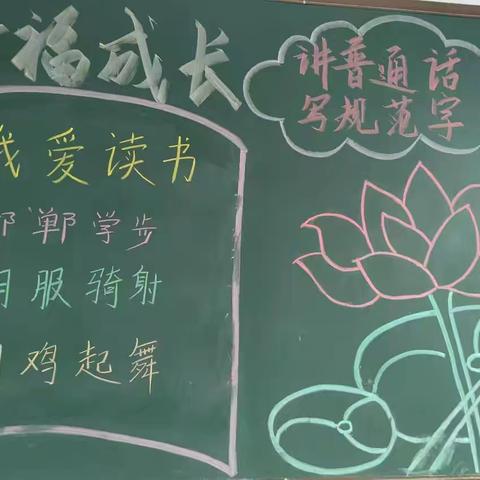 福成长
讲普通话
写规范字
我爱读书
郸学步
服骑射
鸡起舞